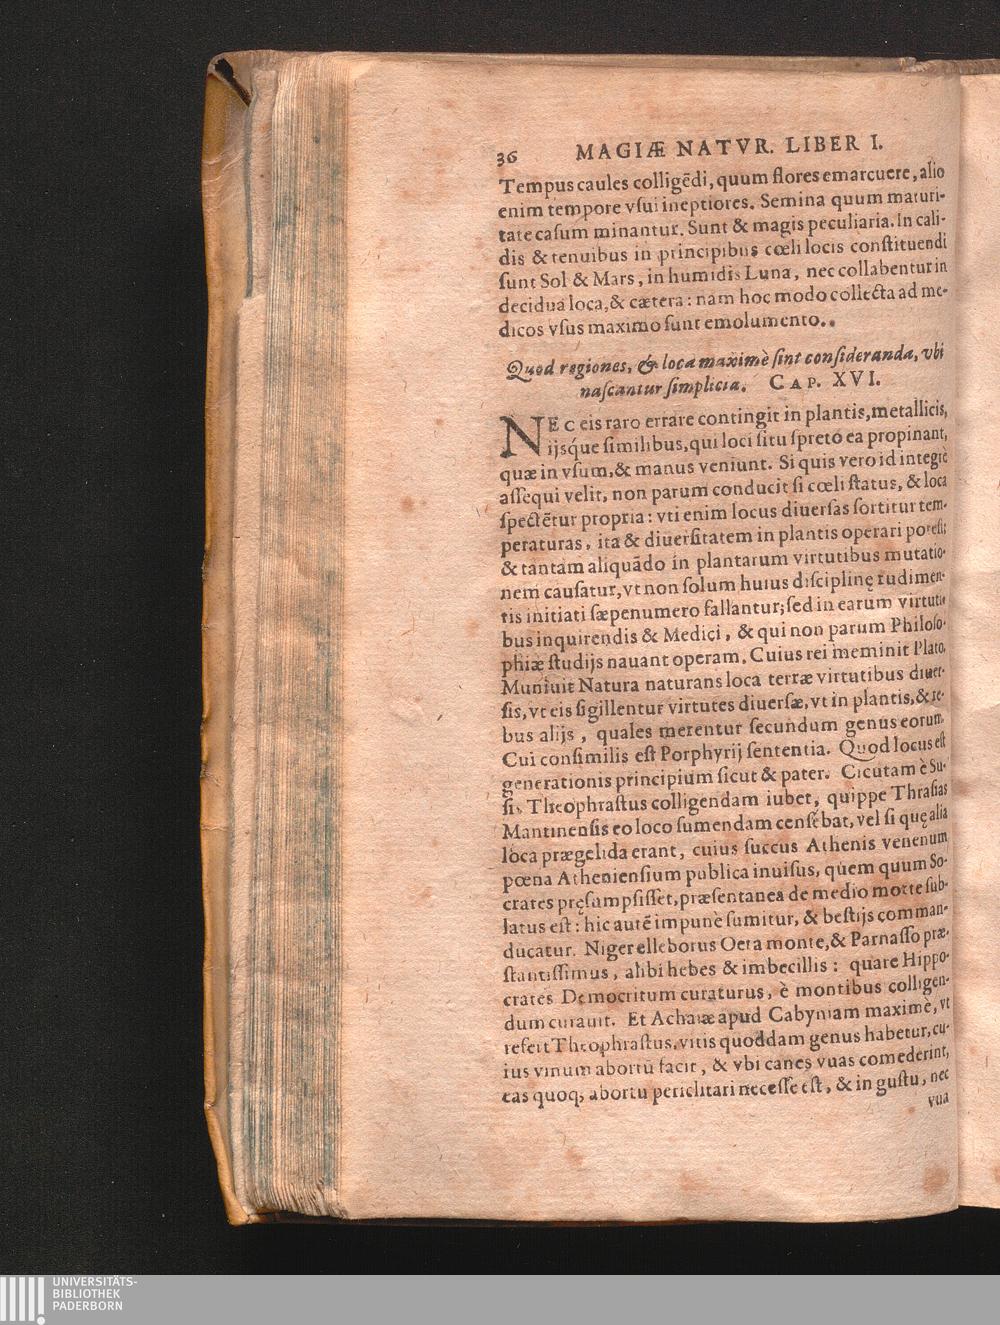 36 MAGIÆ NATVR. LIBER I.
Tempus caules colligēdi, quum flores emarcuere, alio
enim tempore vſui ineptiores. Semina quum maturi-
tate caſum minantur. Sunt & magis peculiaria. In cali-
dis & tenuibus in principibus cœli locis conſtituendi
ſunt Sol & Mars, in humidis Luna, nec collabentur in
decidua loca, & cætera: nam hoc modo collecta ad me-
dicos vſus maximo ſunt emolumento.
Quod regiones, & loca maximè ſint conſideranda, vbi
naſcantur ſimplicia. CAP. XVI.
NEC eis raro errare contingit in plantis, metallicis,
ijsq́ue ſimilibus, qui loci ſitu ſpreto ea propinant,
quæ in vſum, & manus veniunt. Si quis vero id integrè
aſſequi velit, non parum conducit ſi cœli ſtatus, & loca
ſpectētur propria: vti enim locus diuerſas ſortitur tem-
peraturas, ita & diuerſitatem in plantis operari poteſt;
& tantam aliquādo in plantarum virtutibus mutatio-
nem cauſatur, vt non ſolum huius diſciplinę rudimen-
tis initiati ſæpenumero fallantur; ſed in earum virtuti-
bus inquirendis & Medici, & qui non parum Philoſo-
phiæ ſtudijs nauant operam. Cuius rei meminit Plato,
Muniuit Natura naturans loca terræ virtutibus diuer-
ſis, vt eis ſigillentur virtutes diuerſæ, vt in plantis, & re-
bus alijs, quales merentur ſecundum genus eorum.
Cui conſimilis eſt Porphyrij ſententia. Quod locus eſt
generationis principium ſicut & pater. Cicutam è Su-
ſis Theophraſtus colligendam iubet, quippe Thraſias
Mantinenſis eo loco ſumendam cenſębat, vel ſi quę alia
loca prægelida erant, cuius ſuccus Athenis venenum
pœna Athenienſium publica inuiſus, quem quum So-
crates pręſumpſiſſet, præſentanea de medio morte ſub-
latus eſt: hic autē impunè ſumitur, & beſtijs comman-
ducatur. Niger elleborus Oeta monte, & Parnaſſo præ-
ſtantiſſimus, alibi hebes & imbecillis: quare Hippo-
crates Democritum curaturus, è montibus colligen-
dum curauit. Et Achaiæ apud Cabyniam maximè, vt
refert Theophraſtus, vitis quoddam genus habetur, cu-
ius vinum abortū facit, & vbi canes vuas comederint,
eas quoq; abortu periclitari neceſſe eſt, & in guſtu, nec
vua
UNIVERSITÄTS-
BIBLIOTHEK
PADERBORN